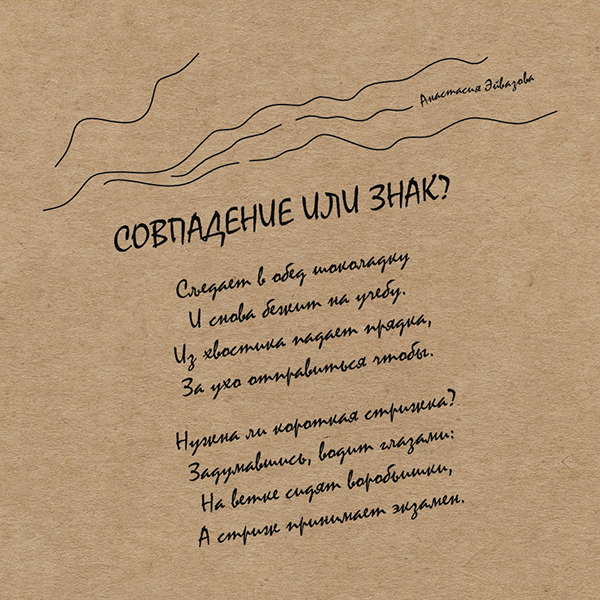 Анастасия Эйвазова
СОВПАДЕНИЕ ИЛИ ЗНАК?
Съедает в обед шоколадку
И снова бежит на учебу.
Из хвостика падает прядка,
За ухо отправиться чтобы.
Нужна ли короткая стрижка?
Задумавшись, водит глазами:
На ветке сидят воробьишки,
А стриж принимает экзамен.